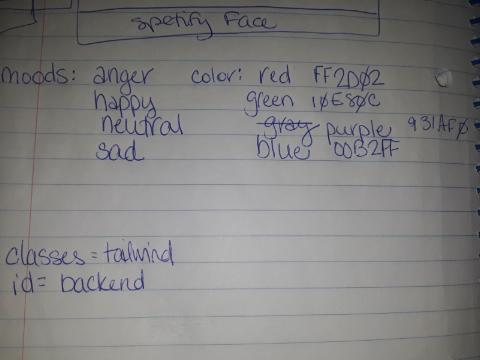 spotify Face
moods: anger color: red FF2D02
happy green 10E80C
neutral gray purple 931AF0
sad blue 00B2FF
classes = tailwind
id = backend